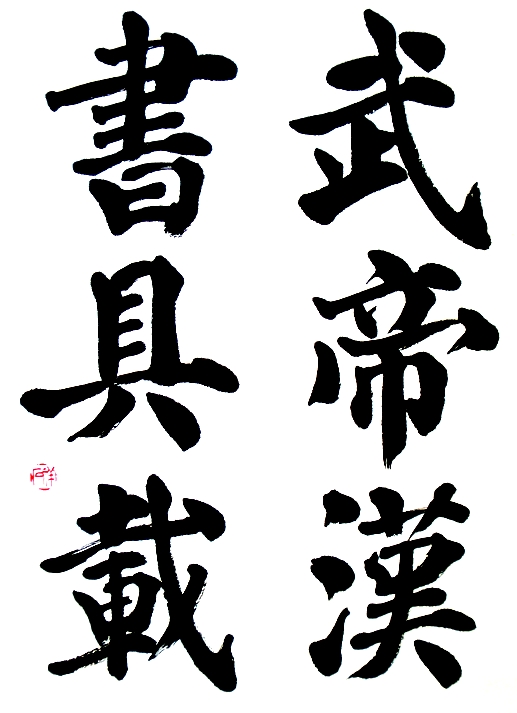 武帝漢
書具載